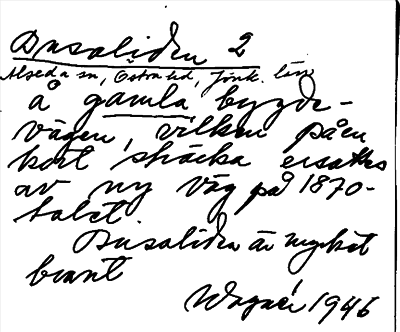 Dusaliden 2
Alseda sn, Östra hd, Jönk. län
å gamla bygde-
vägen, vilken på en
kort sträcka ersatts
av ny väg på 1870-
talet.
Dusaliden är mycket
brant
1946